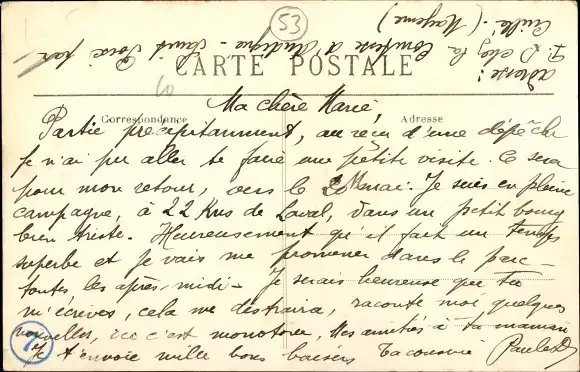 53
adresse:
P. D chez la Comtesse d'Andigné - Saint Poix par
Cuillé. (Mayenne)
CARTE POSTALE
Correspondance
Adresse
Ma chère Marie,
Partie précipitamment, au reçu d'une dépêche
je n'ai pu aller te faire une petite visite. Ce sera
pour mon retour, vers le 20 mai. Je suis en pleine
campagne, à 22 Kms de Laval, dans un petit bourg
bien triste. Heureusement qu'il fait un temps
superbe et je vais me promener dans le parc
toutes les après-midi. Je serais heureuse que tu
m'écrives, cela me distraira, raconte moi quelques
nouvelles, ici c'est monotone, Mes amitiés à ta maman
Je t'envoie mille bons baisers Ta cousine Paule D
7